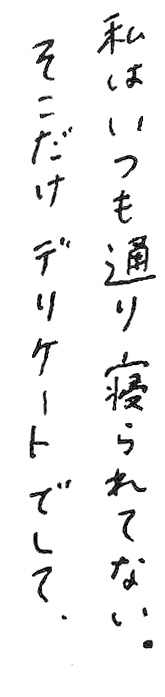 私はいつも通り寝られてない。
そこだけデリケートでして、